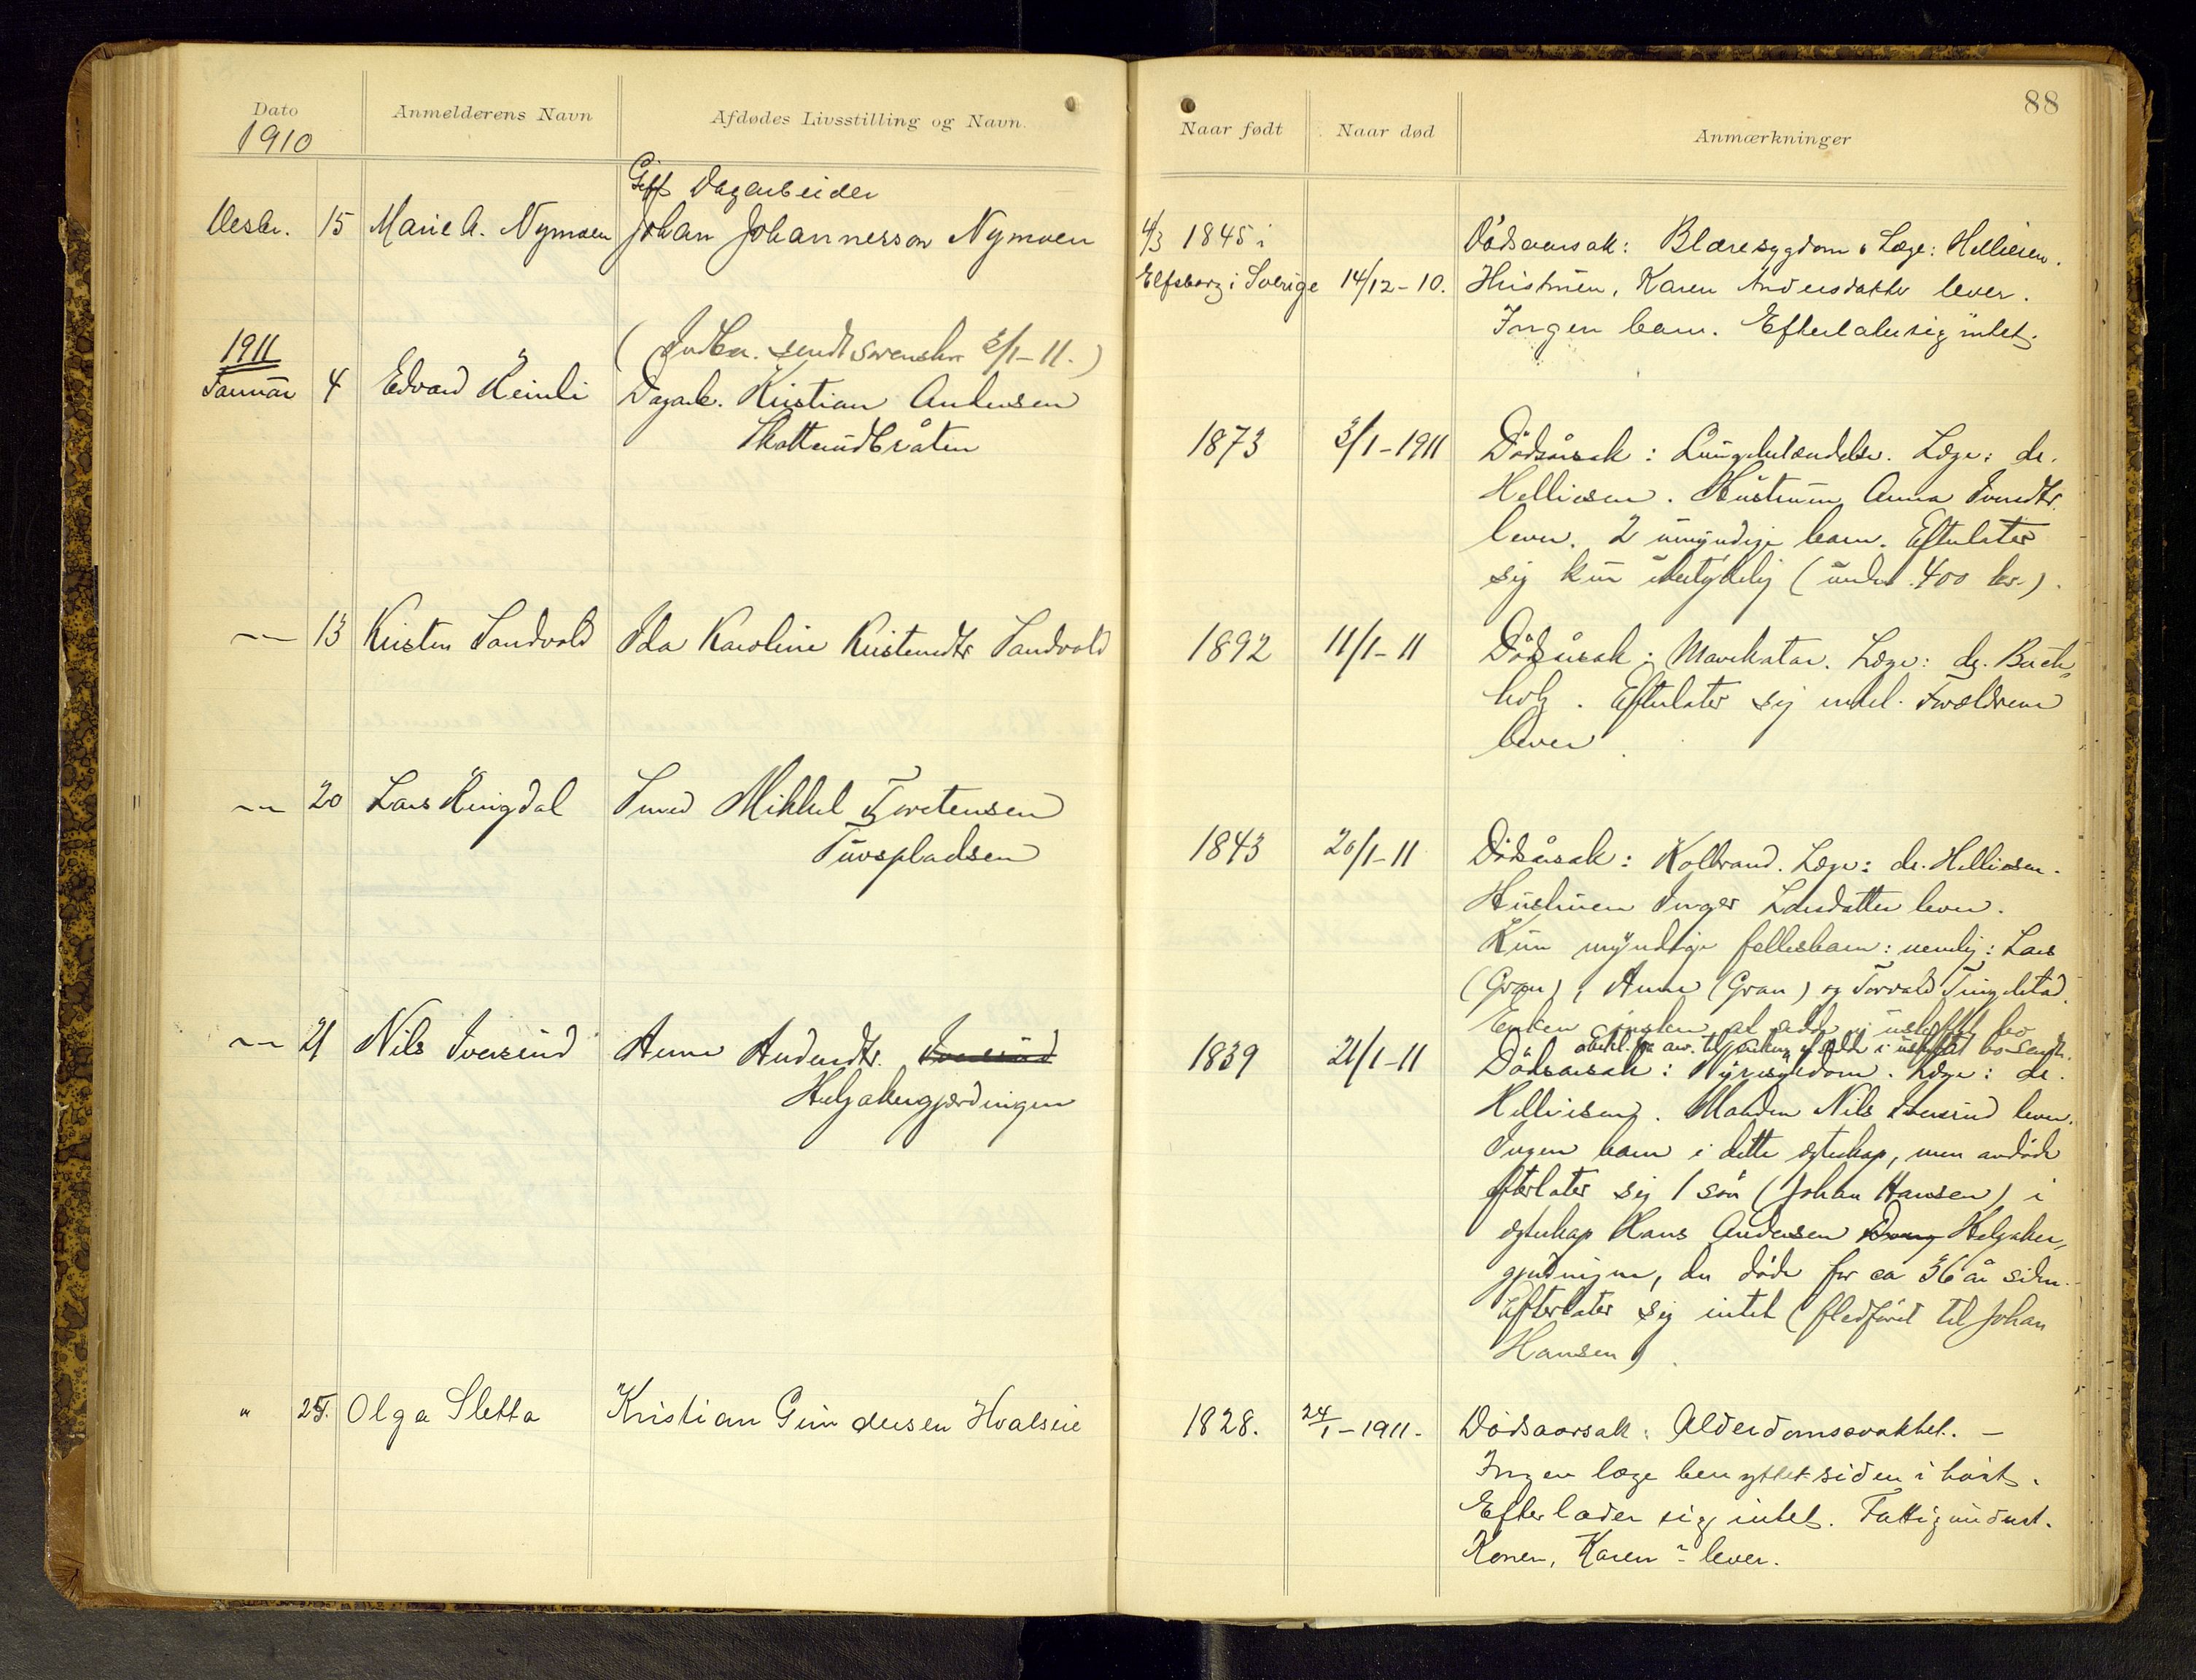 88
Dato Anmelderens Navn Afdødes Livsstilling og Navn. Naar født Naar død Anmærkninger
1910
Gift Dagarbeider
Desbr. 15 Marie A. Nymoen Johan Johannesson Nymoen 4/3 1845 i Dödsaarsak: Blæresygdom. Læge: Helliesen.
Elfsborg i Sverige 14/12-10. Hustruen, Karen Andersdatter lever.
Ingen barn. Efterlater sig intet.
1911
(Indber. sendt svenske 3/1-11.)
Januar 4 Edvard Heinli Dagarb. Kristian Andersen
1873 3/1-1911 Dödsårsak: Lungebetændelse. Læge: dr.
Helliesen. Hustruen Anna Iversdtr.
lever. 2 umyndige barn. Efterlater
sig kun ubetydelig (under 400 kr.).
13 Kristen Sandvold Ida Karoline Kristensdtr Sandvold 1892 11/1-11 Dödsårsak: Mavekatar. Læge: dr. Buch-
holz. Efterlater sig intet. Forældrene
lever.
20 Lars Ringdal Smed Mikkel Torstensen
Tuvspladsen 1843 20/1-11 Dödsårsak: Kolbrand. Læge: dr. Helliesen.
Hustruen Inger Larsdatter lever.
Kun myndige fellesbarn: nemlig: Lars
(Gran), Anne (Gran) og Torvald Tingelstad.
Enken ønsker at sidde i uskiftet bo
21 Nils Iversind Anne Andersdtr. Iversind
Helgakergjærdingen
1839 21/1-11 Dödsaarsak: Nyresygdom. Læge: dr.
Helliesen. Manden Nils Iversind lever.
Ingen barn i dette egteskap, men avdöde
efterlater sig 1 sön (Johan Hansen) i
egteskap Hans Andersen Helgaker-
gjerdingen, der döde for ca 36 år siden.
Efterlater sig intet (fledfört til Johan
Hansen).
" 25. Olga Sletta Kristian Gundersen Hvalseie 1828. 24/1-1911. Dödsaarsak: Alderdomssvakhet. —
Ingen læge benyttet siden i höst.
Efterlader sig intet. Fattigunderst.
Konen, Karen lever.